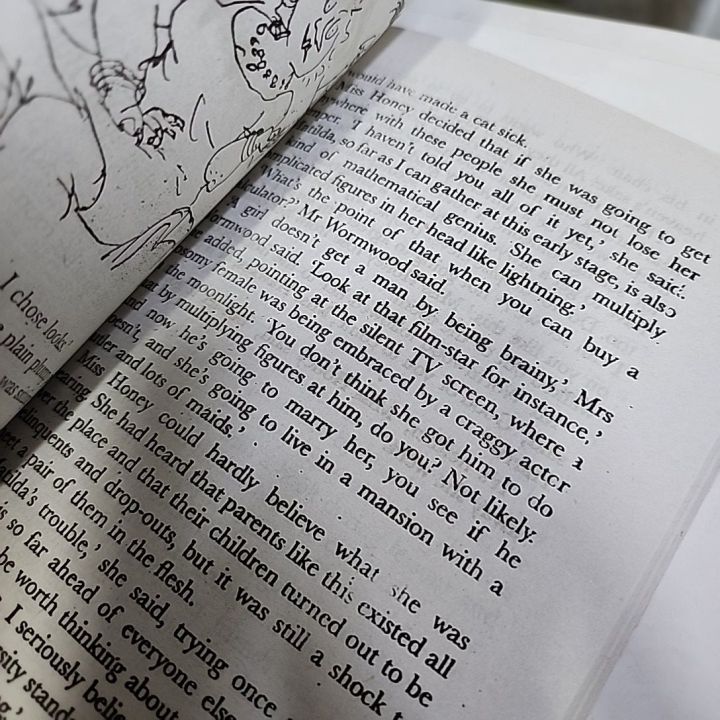 I chose looks
plain
would have made a cat sick.
Miss Honey decided that if she was going to get
with these people she must not lose her
'I haven't told you all of it yet,' she said.
so far as I can gather at this early stage, is also
kind of mathematical genius. 'She can multiply
complicated figures in her head like lightning.'
'What's the point of that when you can buy a
calculator?' Mr Wormwood said.
'A girl doesn't get a man by being brainy,' Mrs
Wormwood said. 'Look at that film-star for instance,'
added, pointing at the silent TV screen, where a
female was being embraced by a craggy actor
the moonlight. 'You don't think she got him to do
that by multiplying figures at him, do you? Not likely.
now he's going to marry her, you see if he
and she's going to live in a mansion with a
and lots of maids.'
Miss Honey could hardly believe what she was
She had heard that parents like this existed all
the place and that their children turned out to be
and drop-outs, but it was still a shock
a pair of them in the flesh.
trouble,' she said, trying once
so far ahead of everyone else
be worth thinking about
I seriously